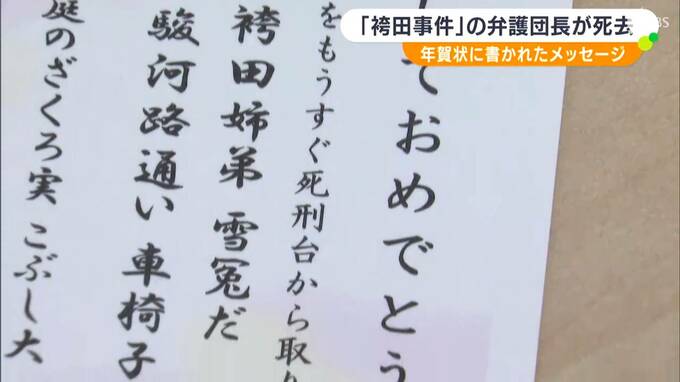 「袴田事件」の弁護団長が死去
年賀状に書かれたメッセージ
ておめでとう
をもうすぐ死刑台から取り
袴田姉弟 雪冤だ
駿河路通い 車椅子
庭のざくろ実 こぶし大